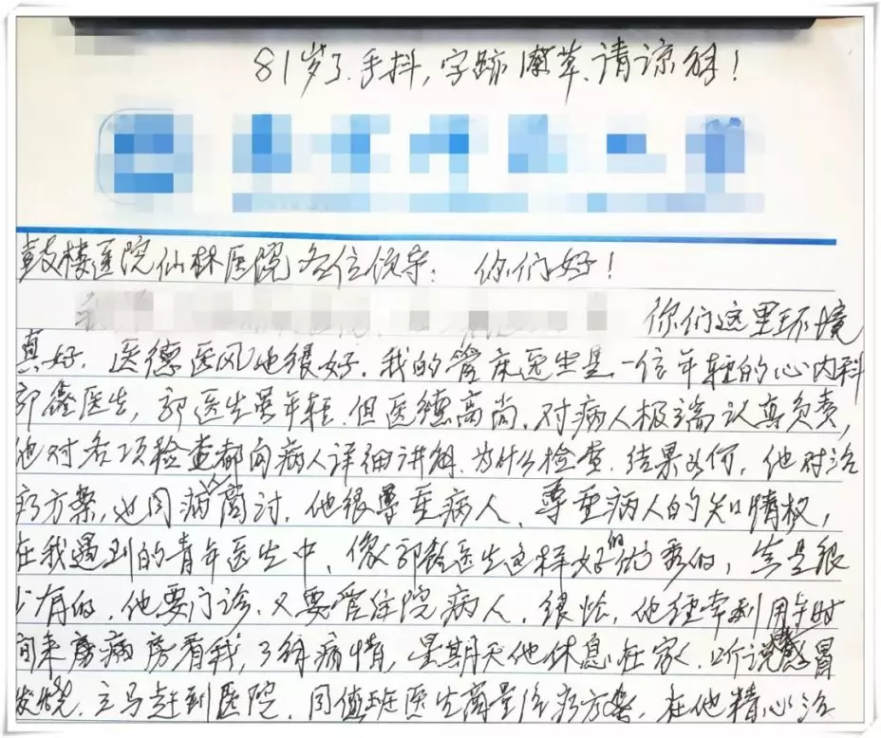 81岁了.手抖,字跡潦草.请谅解!
鼓楼医院仙林医院各位领导: 你们好!
你们这里环境
真好.医德医风也很好.我的管床医生是一位年轻的心内科
郭鑫医生,郭医生虽年轻.但医德高尚.对病人极端认真负责,
他对各项检查都向病人详细讲解.为什么检查.结果如何.他对治
疗方案,也同病人商讨.他很尊重病人、尊重病人的知情权,
在我遇到的青年医生中,像郭鑫医生这样好的优秀的,真是很
少有的.他要门诊.又要管住院病人.很忙.他经常利用午时
间来病房看我,了解病情,星期天他休息在家.听说感冒
发烧.立马赶到医院.同值班医生商量治疗方案.在他精心治